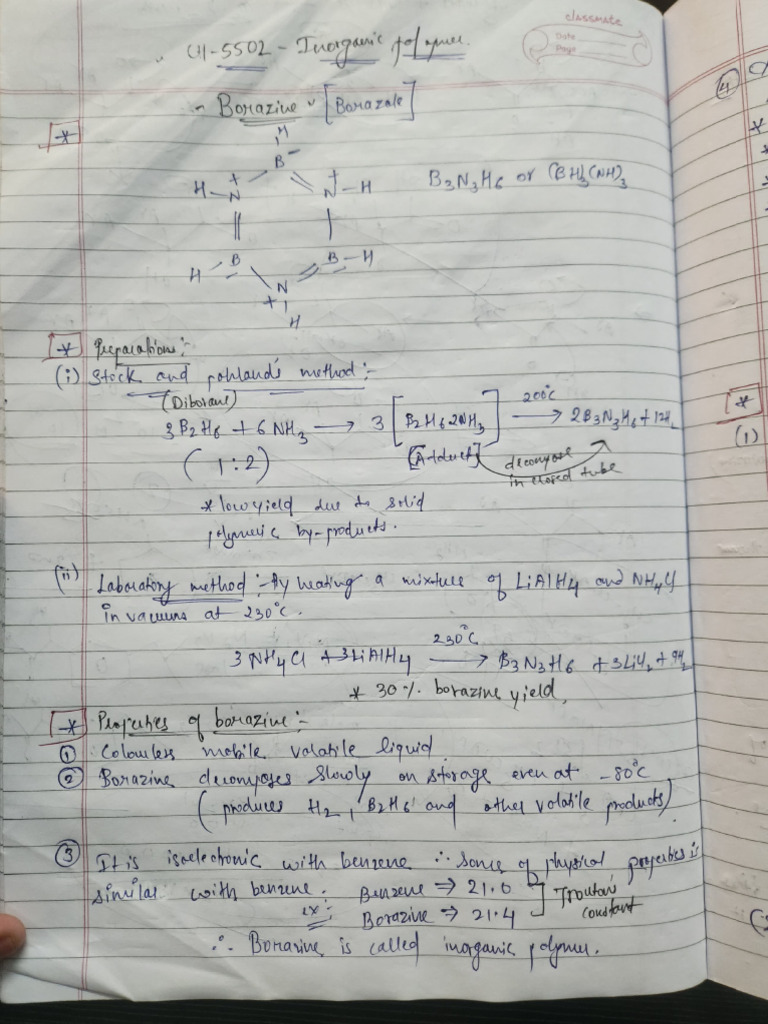 classmate
Date
Page
CH-5502 - Inorganic polymer.
Borazine [Borazole]
*
H
B -
H - N + N + - H B3N3H6 or (BH)3(NH)3
H - B B - H
N +
H
* Preparations:-
(i) Stock and pohland's method:-
(Diborane)
3B2H6 + 6NH3 → 3 [B2H6 2NH3] 200°C → 2B3N3H6 + 12H2
(1:2) [Adduct] decompose
in closed tube
* low yield due to solid
polymeric by-products.
(ii) Laboratory method:- By heating a mixture of LiAlH4 and NH4Cl
in vacuum at 230°C.
3NH4Cl + 3LiAlH4 230°C → B3N3H6 + 9H2
* 30% borazine yield,
* Properties of borazine:-
① Colourless mobile volatile liquid
② Borazine decomposes slowly on storage even at -80°C
(produces H2, B2H6 and other volatile products)
③ It is isoelectronic with benzene ∴ some of physical properties is
similar with benzene. Benzene ⇒ 21.0 ] Trouton
ex:- Borazine ⇒ 21.4 constant
∴ Borazine is called inorganic polymer.
④
*
*
(1)